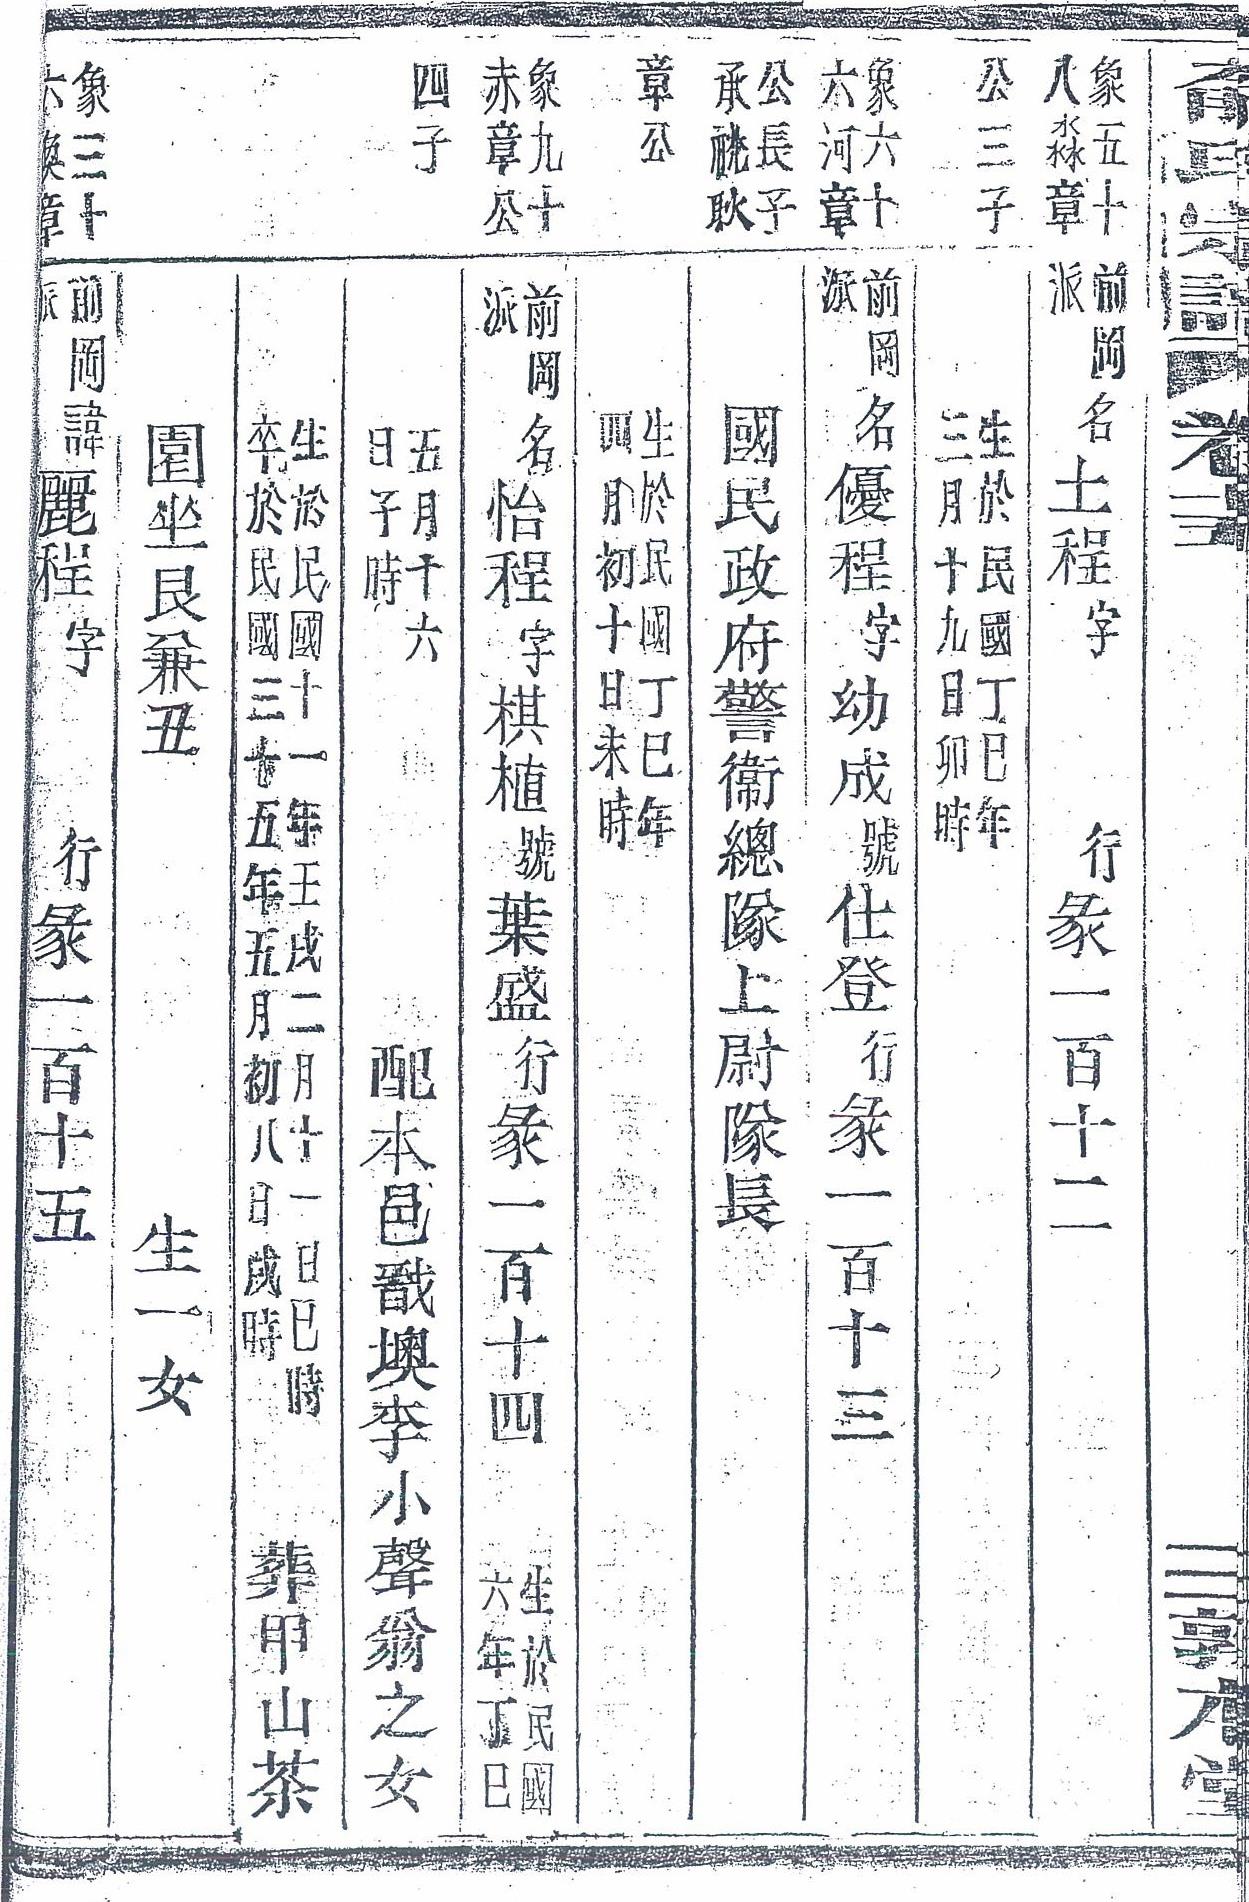 卷三
三
象五十
八淼章
前岡
派
名土程字
行彖一百十二
公三子
生於民國丁巳年
三月十九日卯時
象六十
六河章
前岡
派
名優程字幼成號仕登行彖一百十三
公長子
承祧耿
國民政府警衞總隊上尉隊長
章公
生於民國丁巳年
四月初十日未時
象九十
赤章公
前岡
派
名怡程字棋植號葉盛行彖一百十四
生於民國
六年丁巳
四子
五月十六
日子時
配本邑戬墺李小聲翁之女
生於民國十一年壬戌二月十一日巳時
卒於民國三七五年五月初八日戌時
葬甲山茶
園坐艮兼丑
生一女
象三十
六煥章
前岡
派
諱麗程字
行彖一百十五